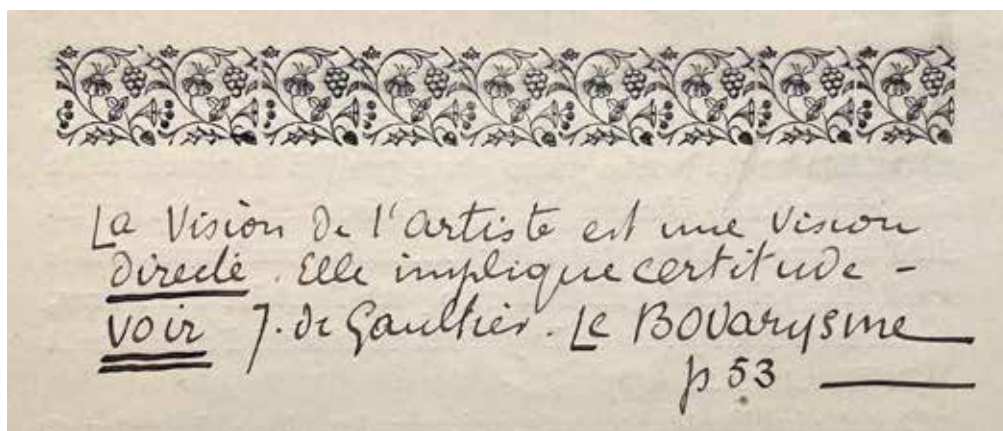 La Vision de l'artiste est une Vision
directe. Elle implique certitude -
voir J. de Gaultier. Le BOVarysme
p 53